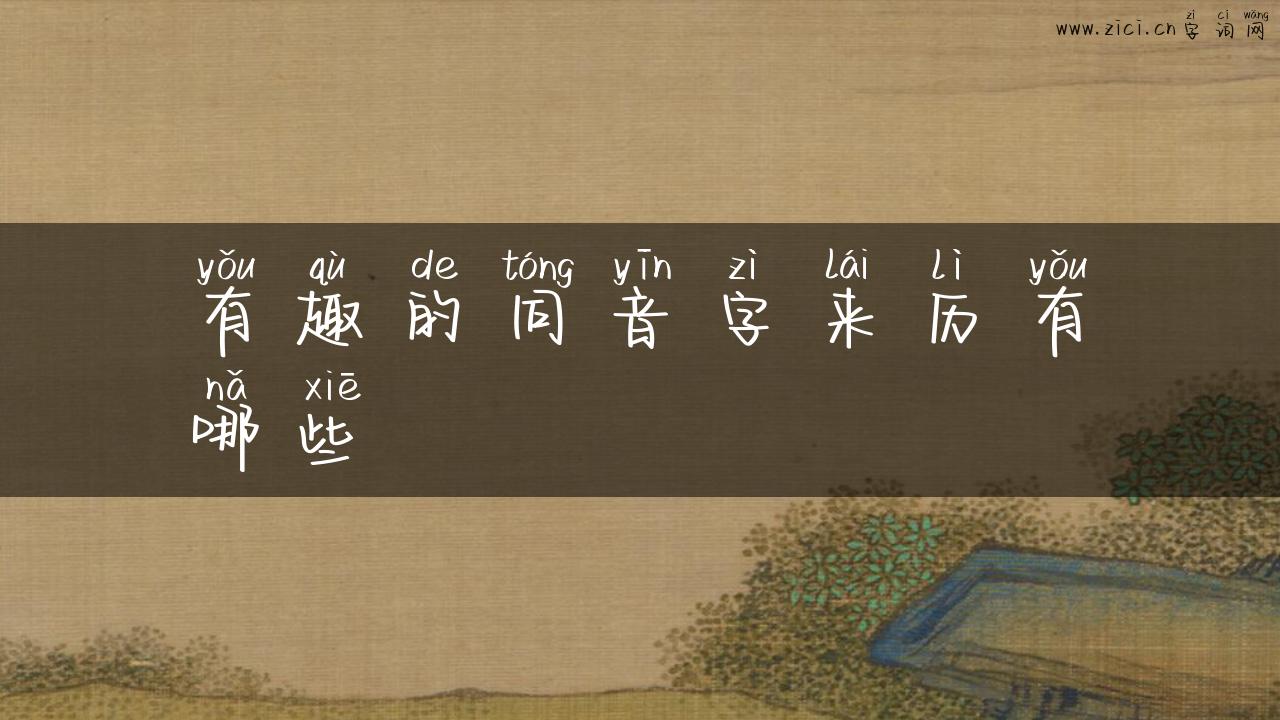 zì cí wǎng
www.zici.cn 字 词 网
yǒu qù de tóng yīn zì lái lì yǒu
有 趣 的 同 音 字 来 历 有
nǎ xiē
哪 些